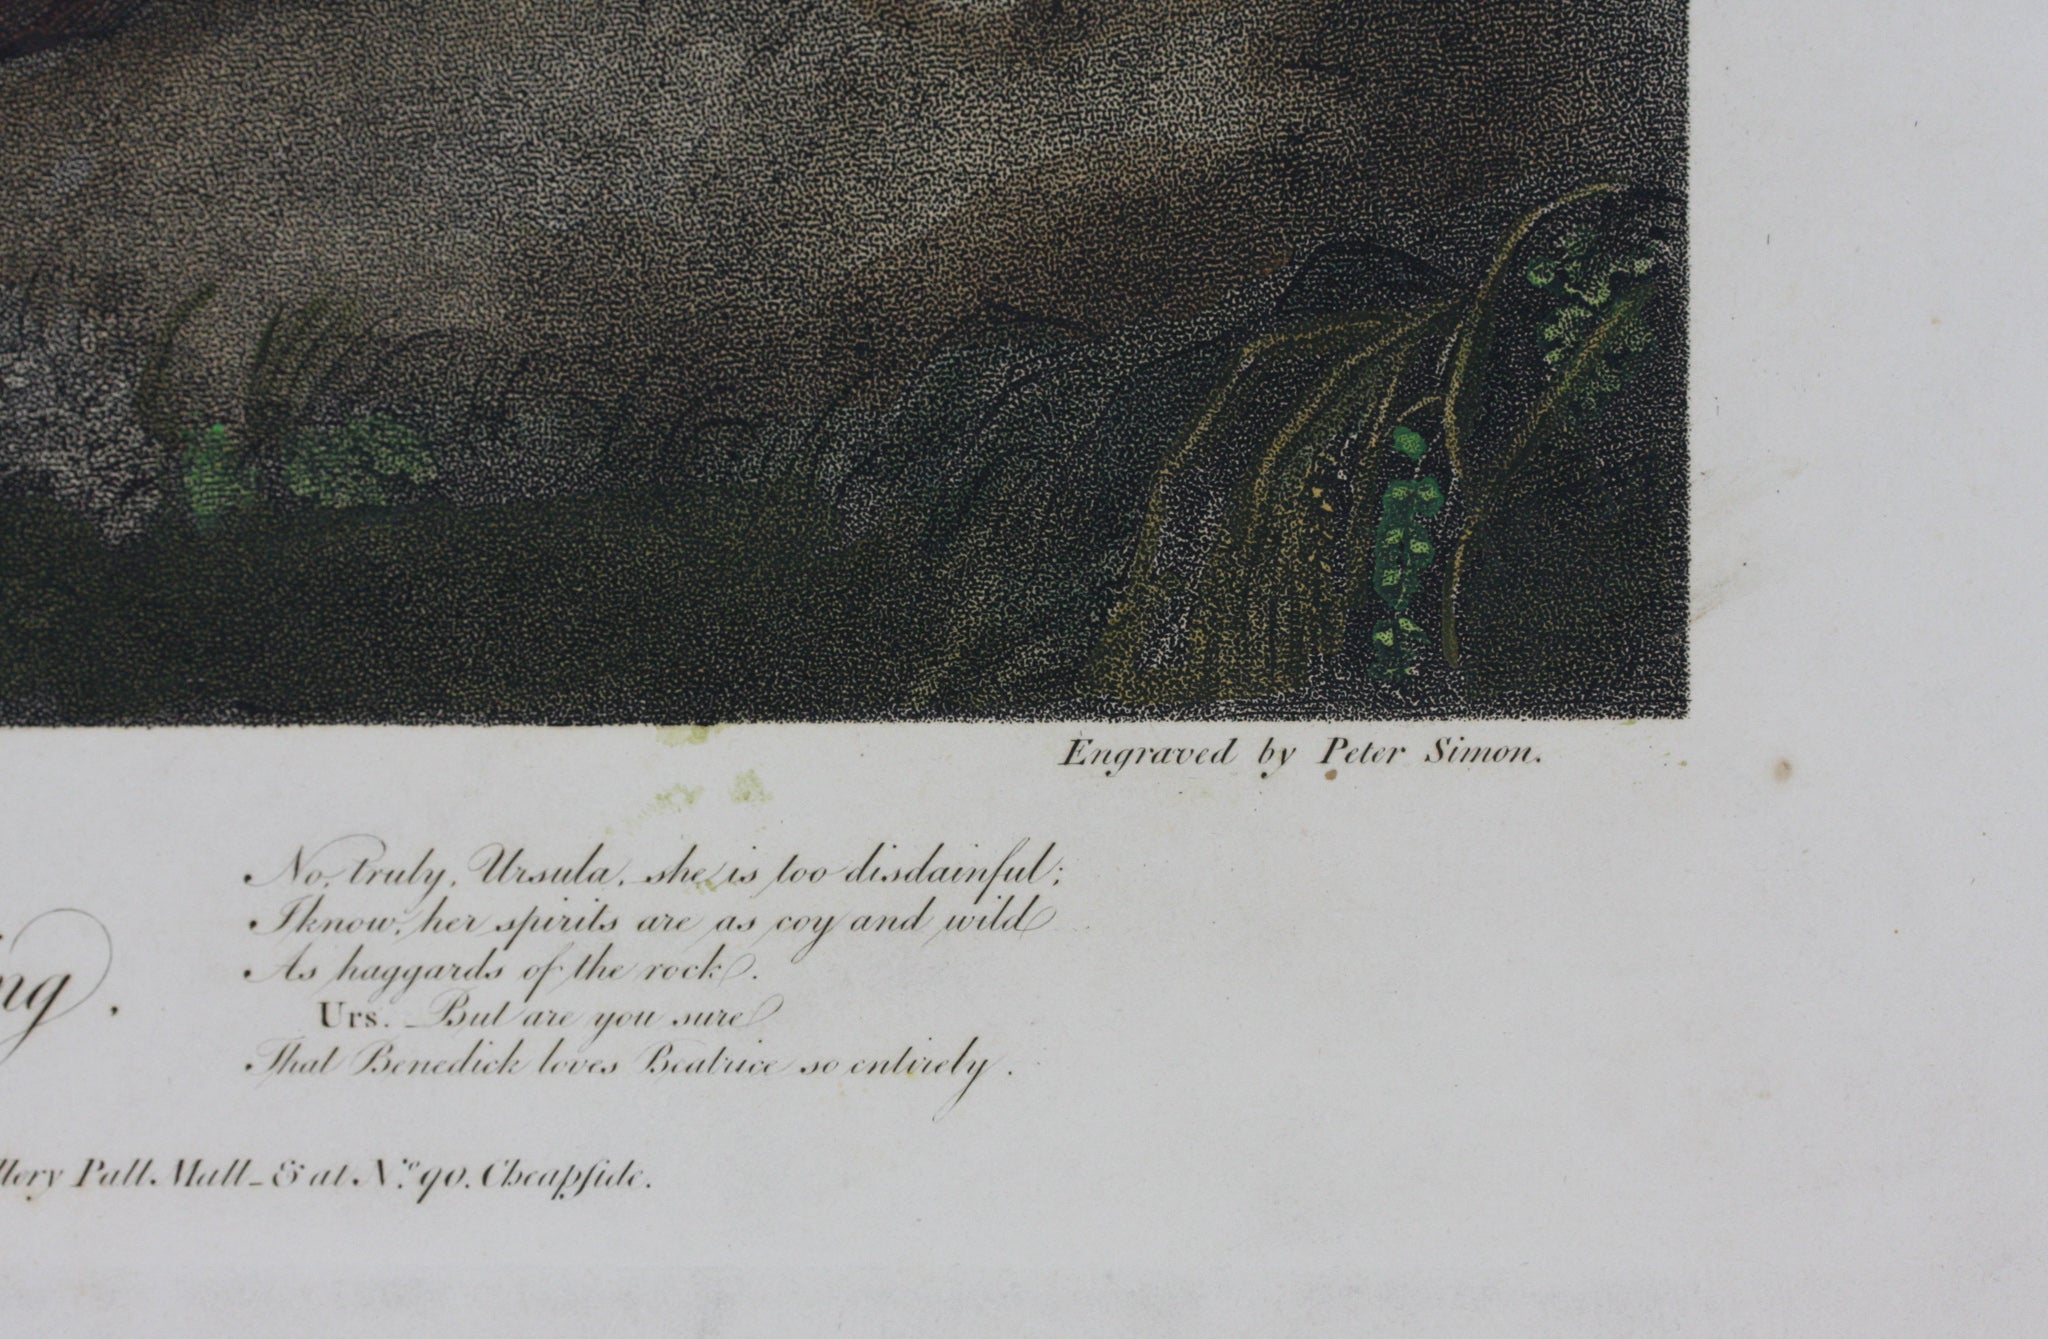 Engraved by Peter Simon.
No, truly, Ursula, she is too disdainful;
I know, her spirits are as coy and wild
As haggards of the rock.
ng,
Urs. _ But are you sure
That Benedick loves Beatrice so entirely.
llery Pall Mall_ & at N.º 90. Cheapſide.